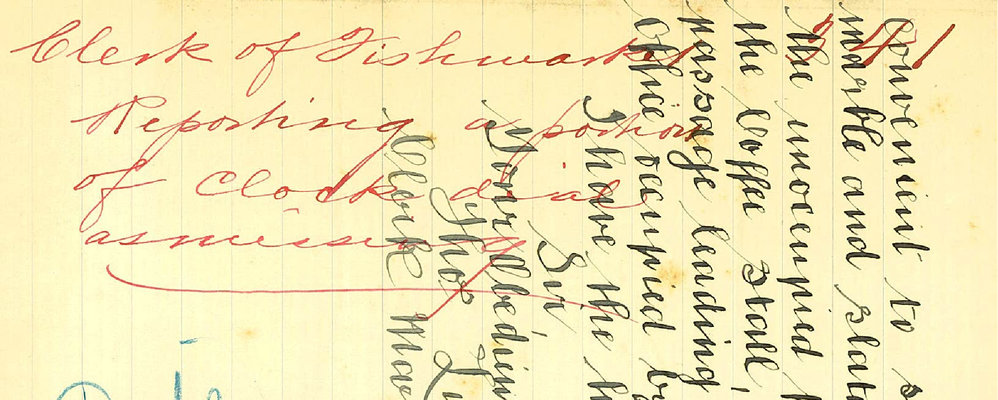 Clerk of Fishmarket
Reporting a portion
of Clock dial
as missing
convenient to
marble and slat
the unoccupied
the Coffee Stall,
passage leading
Office occupied b
I have the h
Sir,
Your Obedien
Thos
Clerk Mar